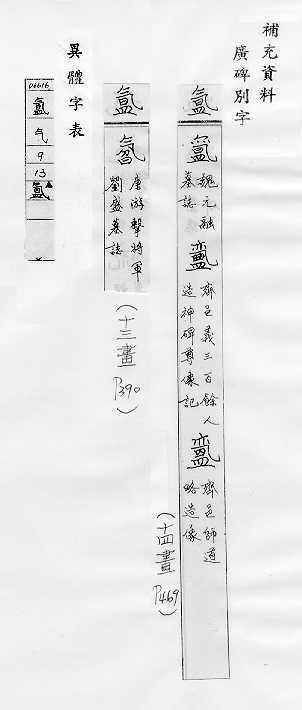 補充資料
廣碑別字
氳
魏元融
墓誌
齊邑義三百餘人
造神碑尊像記
齊邑師道
略造像
(十四畫
P469)
氲
唐游擊將軍
劉盛墓誌
(十三畫
P390)
異體字表
06616
氳
气
9
13
氲